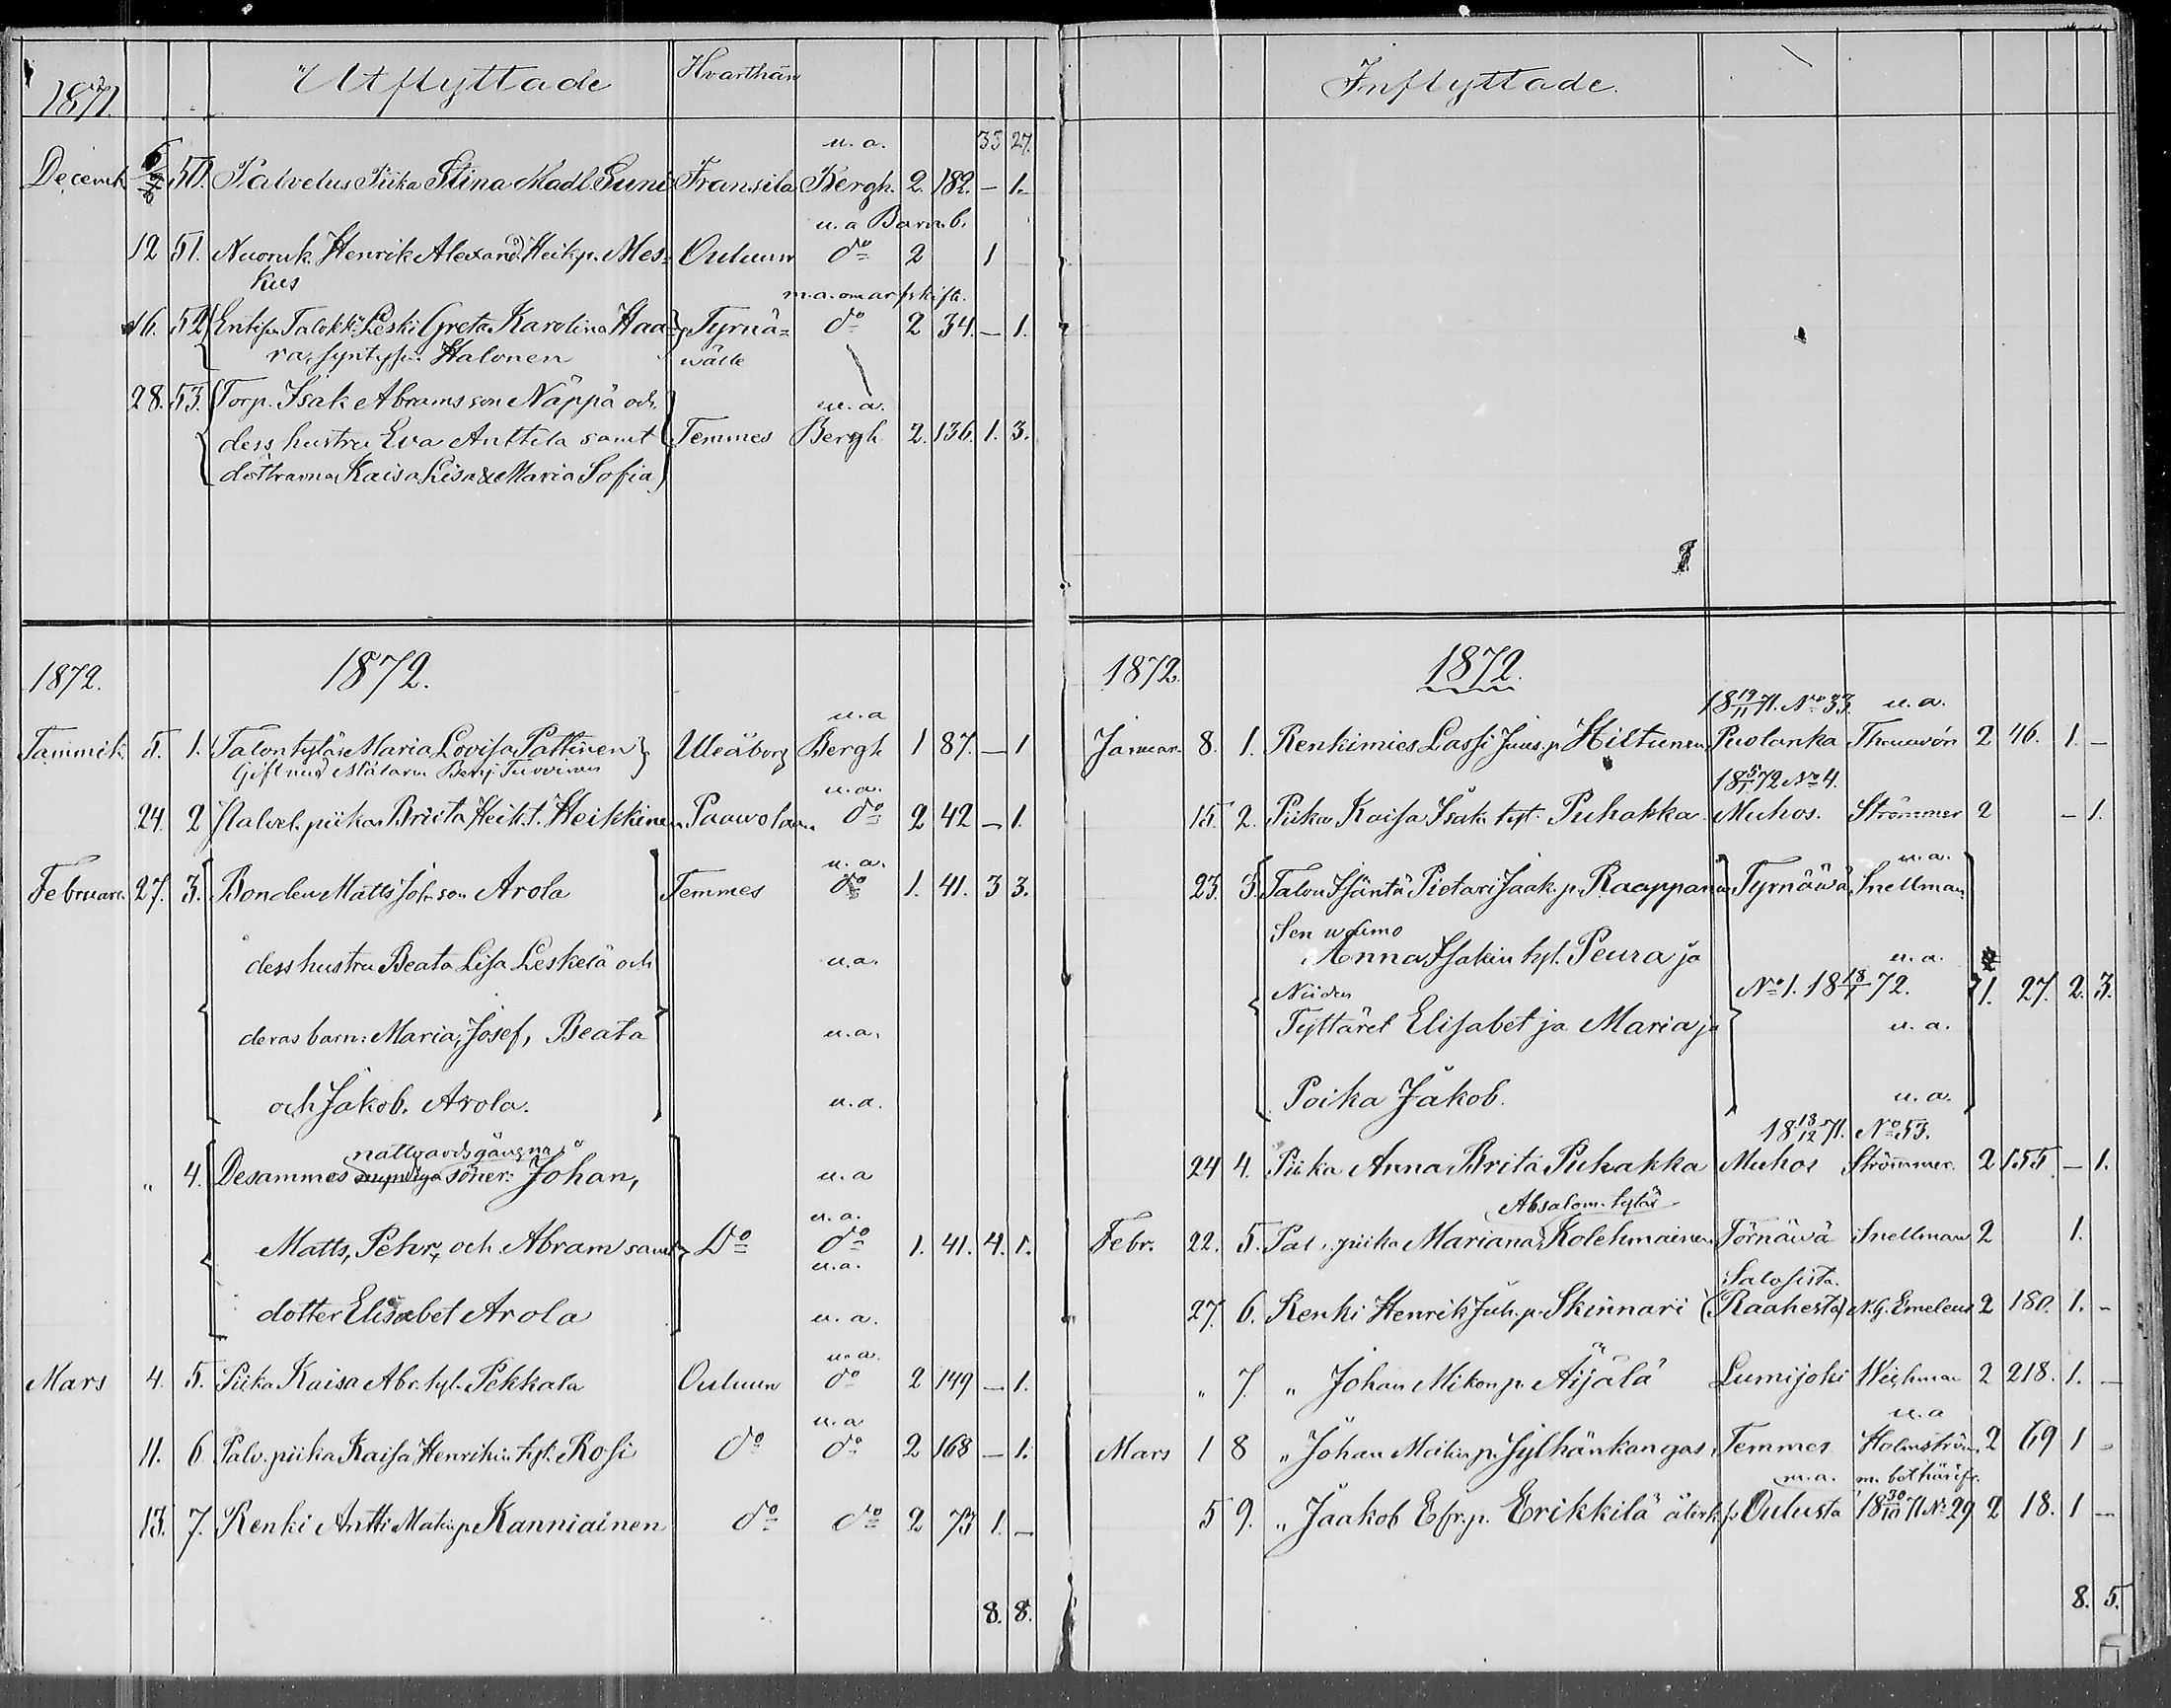 1871. Utflyttade Hvarthän
u. a. 33 27.
Decemb. 50. Palvelus Piika Stina Madl. Suni Fransila Bergh. 2. 182. – 1.
u. a Barnb.
12 51. Nuoruk. Henrik Alexand. Heik. p. Mes= Ouluun do 2 1
kus
m. a. om arfskifte.
16. 52 Entis. Talokk. Leski Greta Karolina Haa= Tyrnä= do 2 34. – 1.
ra, syntysi. Halonen wälle
28. 53. Torp. Isak Abramsson Näppä och
u. a.
dess hustru Eva Anttila samt Temmes Bergh 2. 136. 1. 3.
döttrarna Kaisa Lisa & Maria Sofia
1872. 1872.
u. a
Tammik. 5. 1. Talontytär Maria Lovisa Pattinen Uleåborg Bergh 1 87. – 1
Gift med Målaren Benj. Turvinen
u. a.
24. 2 Palvel. piika Briita Heik. t. Heikkinen Paawolaan do 2 42 – 1.
u. a.
Februari. 27. 3. Bonden Matts Johsson Arola Temmes do 1. 41. 3 3.
dess hustru Beata Lisa Leskelä och u. a.
deras barn: Maria, Josef, Beata u. a.
och Jakob. Arola. u. a.
nattvardsgångna
" 4. Desammes myndiga söner: Johan, u. a
u. a.
Matts, Pehr, och Abram samt Do do 1. 41. 4. 1.
u. a.
dotter Elisabet Arola u. a.
u. a.
Mars 4. 5. Piika Kaisa Abr. tyt. Pekkala Ouluun do 2 149 – 1.
u. a
11. 6 Palv. piika Kaisa Henrikin tyt. Rosi do do 2 168 – 1.
13. 7. Renki Antti Matin p. Kanniainen do do 2 73 1. –
8. 8.
Inflyttade.
1872. 1872.
18 19/11 71. No 33. u. a.
Januar. 8. 1. Renkimies Lassi Juus. p. Hiltunen Puolanka Thauwón 2 46. 1. –
18 5/1 72 No 4.
15. 2. Piika Kaisa Isak. tyt. Puhakka Muhos. Strömmer 2 – 1.
u. a.
23. 3. Talon Isäntä Pietari Jaak. p. Raappana Tyrnäwä Snellman
Sen waimo
Anna Isakin tyt. Peura ja u. a.
Niiden No 1. 18 18/1 72. 1. 27. 2. 3.
Tyttäret Elisabet ja Maria ja u. a.
Poika Jakob. u. a.
18 13/12 71. No 53.
24 4. Piika Anna Brita Puhakka Muhos Strömmer. 2 155 – 1.
Absalom. tytär
Febr. 22. 5. Pal. piika Mariana Kolehmainen Törnäwä Snellman 2 1.
Salosista.
27. 6. Renki Henrik Juh. p. Skinnari (Raahesta) N. G. Emeleus 2 180. 1. –
" 7. " Johan Mikon p. Äijälä Lumijoki Wichman 2 218. 1. –
u. a
Mars 1 8 " Johan Matin p. Jylhänkangas Temmes Holmström 2 69 1 –
m. a. m. bet härifr.
5 9. " Jaakob Efr. p. Erikkilä Oulusta 18 30/10 71 No 29 2 18. 1 –
8. 5.